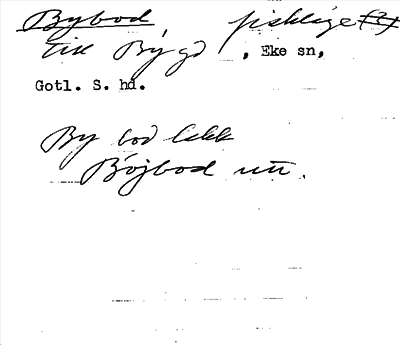 Bybod fiskläge (?)
till Bygd, Eke sn,
Gotl. S. hd.
By bod Lekk
Böjbod utt.